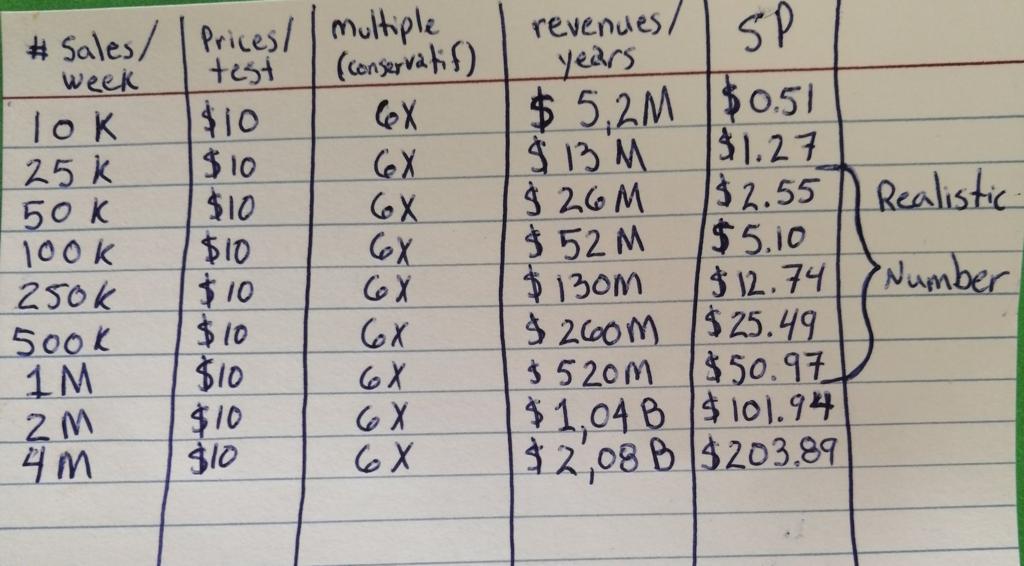 # Sales/ week | Prices/ test | multiple (conservatif) | revenues/ years | SP
10 K | $10 | 6X | $ 5,2M | $0.51
25 K | $10 | 6X | $ 13 M | $1.27
50 K | $10 | 6X | $ 26 M | $2.55
100 K | $10 | 6X | $ 52 M | $5.10
250K | $10 | 6X | $ 130M | $12.74
500K | $10 | 6X | $ 260M | $25.49
1M | $10 | 6X | $ 520M | $50.97
2M | $10 | 6X | $1,04 B | $101.94
4M | $10 | 6X | $2,08 B | $203.89
Realistic
Number